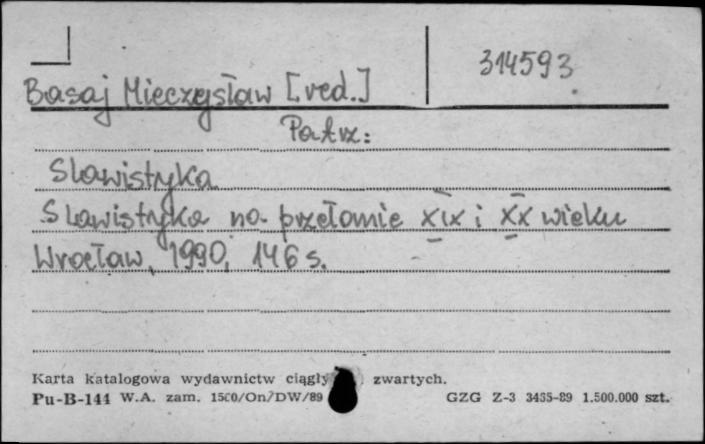 314593
Basaj Mieczysław [red.]
Patrz:
Slawistyka
Slawistyka na przełomie XIX i XX wieku
Wrocław, 1990, 146 s.
Karta katalogowa wydawnictw ciągły zwartych.
Pu-B-144 W.A. zam. 1500/On/DW/89 GZG Z-3 3435-89 1.500.000 szt.